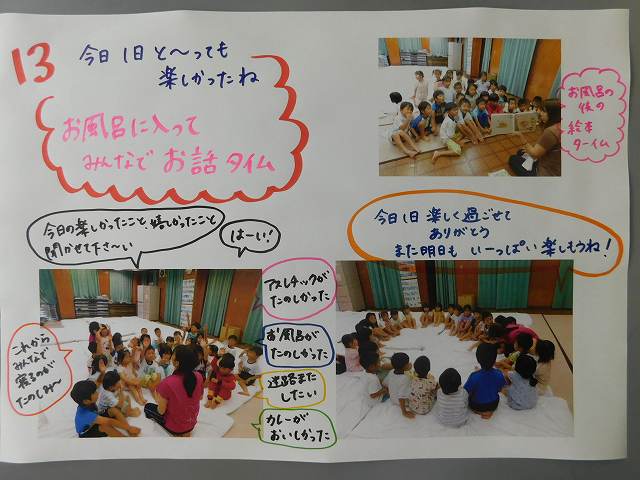 13
今日1日と〜っても
楽しかったね
お風呂に入って
みんなでお話タイム
お風呂の
後の
絵本
タ-イム
今日の楽しかったこと、嬉しかったこと
聞かせて下さ〜い
はーい!
今日1日楽しく過ごせて
ありがとう
また明日もい-っぱい楽しもうね!
アスレチックが
たのしかった
お風呂が
たのしかった
迷路また
したい
カレーが
おいしかった
これから
みんなで
寝るのが
たのしみ〜